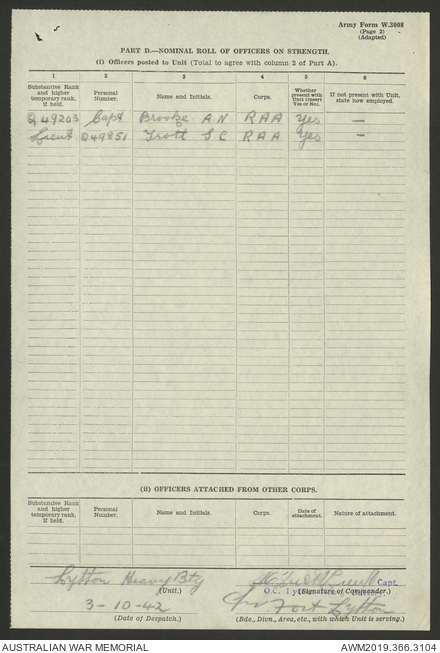 Army Form W.3008
(Page 2)
(Adapted)
PART D.—NOMINAL ROLL OF OFFICERS ON STRENGTH.
(i) Officers posted to Unit (Total to agree with column 2 of Part A).
1 2 3 4 5 6
Substantive Rank and higher temporary rank, if held. Personal Number. Name and Initials. Corps. Whether present with Unit (insert Yes or No). If not present with Unit, state how employed.
Q49203 Capt Brooke A N RAA Yes —
Lieut Q49851 Trott S C RAA Yes —
(ii) OFFICERS ATTACHED FROM OTHER CORPS.
Substantive Rank and higher temporary rank, if held. Personal Number. Name and Initials. Corps. Date of attachment. Nature of attachment.
Lytton Heavy Bty Capt.
(Unit.) O.C. (Signature of Commander.)
3-10-42 Fort Lytton
(Date of Despatch.) (Bde., Divn., Area, etc., with which Unit is serving.)
AUSTRALIAN WAR MEMORIAL AWM2019.366.3104